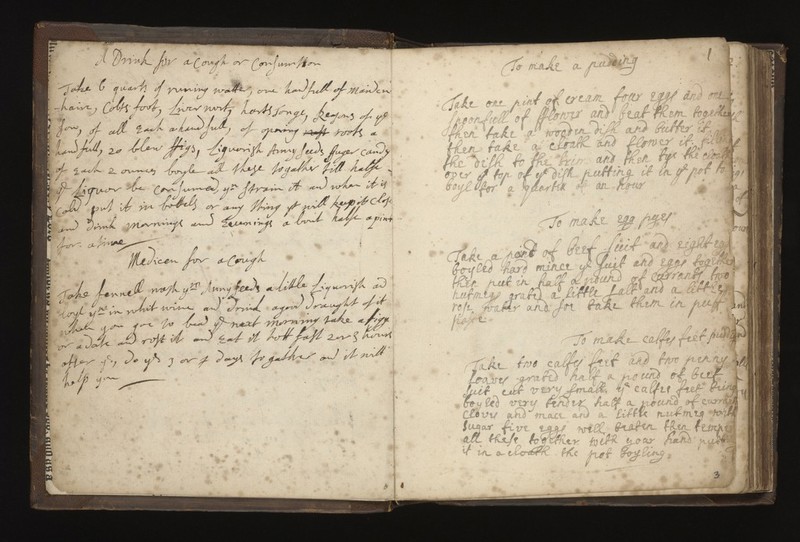 A Drink for a Cough or Consumtion
Take 6 quarts of runing watter, one handfull of Maiden
haire, Colts foot, Liverwort, harts tonge, Reasons of ye
Son, of all Each a handfull, of opening roots a
handfull, 20 blew figs, Liquerish Anny seeds suger candy
of Each 2 ounces boyle all these together till halfe
ye liquor be Consumed yn strain it and when it is
Cold put it in bottels or any thing yt will keep it Close
and drink mornings and Evenings a bout halfe a pint
for a time
Medicen for a Cough
Take fennell wash ym Anny seeds a little liquerish and
boyle ym in whit wine and drink a good draught of it
when you goe to bed ye next morning take a figge
or a date and rost it and Eat it hott fast 2 or 3 hours
after it, do ys 3 or 4 days together and it will
help you
1
To make a puding
Take one pint of cream four eggs and one
spoonfull of flower and beat them together
then take a wooden dish and butter it
then take a cloath and flower it fill
the dish to the brim and then tye the cloath
over ye top of ye dish putting it in ye pot to
boyl for a quarter of an hour
To make egg pyes
Take a pound of beef suit and eight eggs
boyled hard mince ye suit and eggs together
then put in half a pound of currants two
nutmegs grated a little salt and a little
rose water and soe bake them in puff
paste
To make calfes feet pudding
Take two calfes feet and two penny
loaves grated half a pound of beef
suit cut very small ye calfes feet being
boyled very tender half a pound of currants
cloves and mace and a little nutmeg with
sugar five eggs well beaten then temper
all these together with your hand put
it in a cloath the pot boyling
3